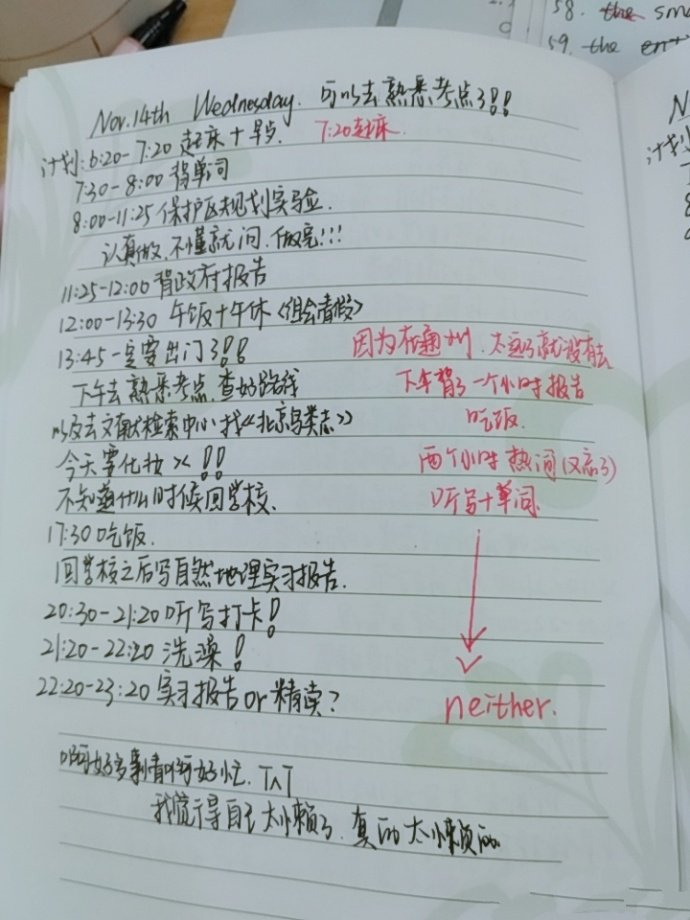 58. the sma
59. the ent
Nov.14th Wednesday. 可以去熟悉考点了!!
计划: 6:20-7:20 起床+早点. 7:20起床.
7:30-8:00 背单词
8:00-11:25 保护区规划实验.
认真做,不懂就问,做完!!!
11:25-12:00 背政府报告
12:00-13:30 午饭+午休<组会请假>
13:45 一定要出门了!!!
因为在通州,太远了就没有去
下午去熟悉考点,查好路线
下午背了一个小时报告
以及去文献检索中心找《北京鸟类志》
吃饭.
今天要化妆 !!
两个小时热词(又忘了)
不知道什么时候回学校.
听写+单词
17:30 吃饭.
回学校之后写自然地理实习报告.
20:30-21:20 听写打卡!
21:20-22:20 洗澡!
22:20-23:20 实习报告 or 精读?
neither.
啊好多事情啊好忙. T∧T
我觉得自己太懒了,真的太懒了
N
计划